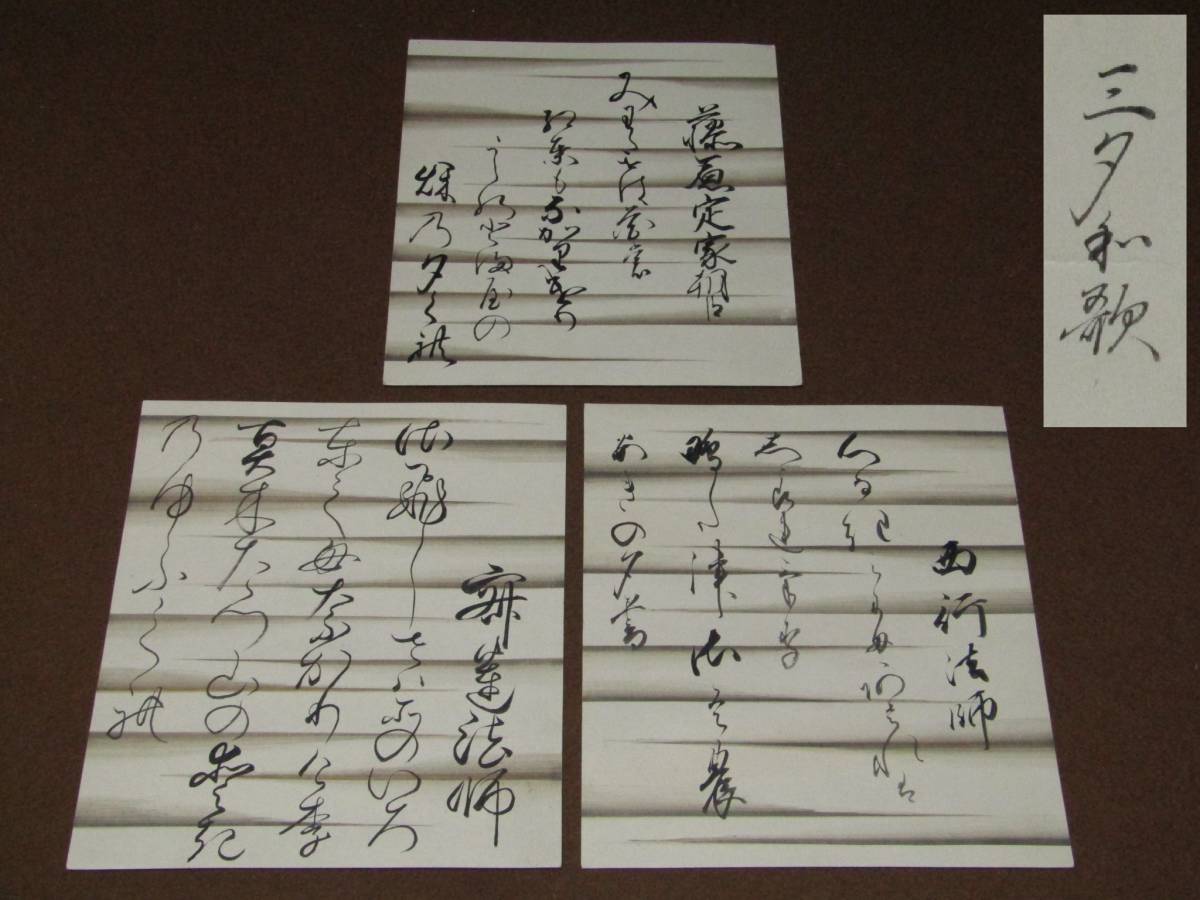 三夕和歌
藤原定家朝臣
みわたせは花裳
紅葉もなかりけり
うらのとま屋の
秋乃夕くれ
西行法師
心なき身にも阿はれは
しられけり
鴫たつ沢農
あきの夕暮
寂蓮法師
沙飛しさハそのいろ
としもなかりけ李
真木たつ山のあき
乃ゆふくれ